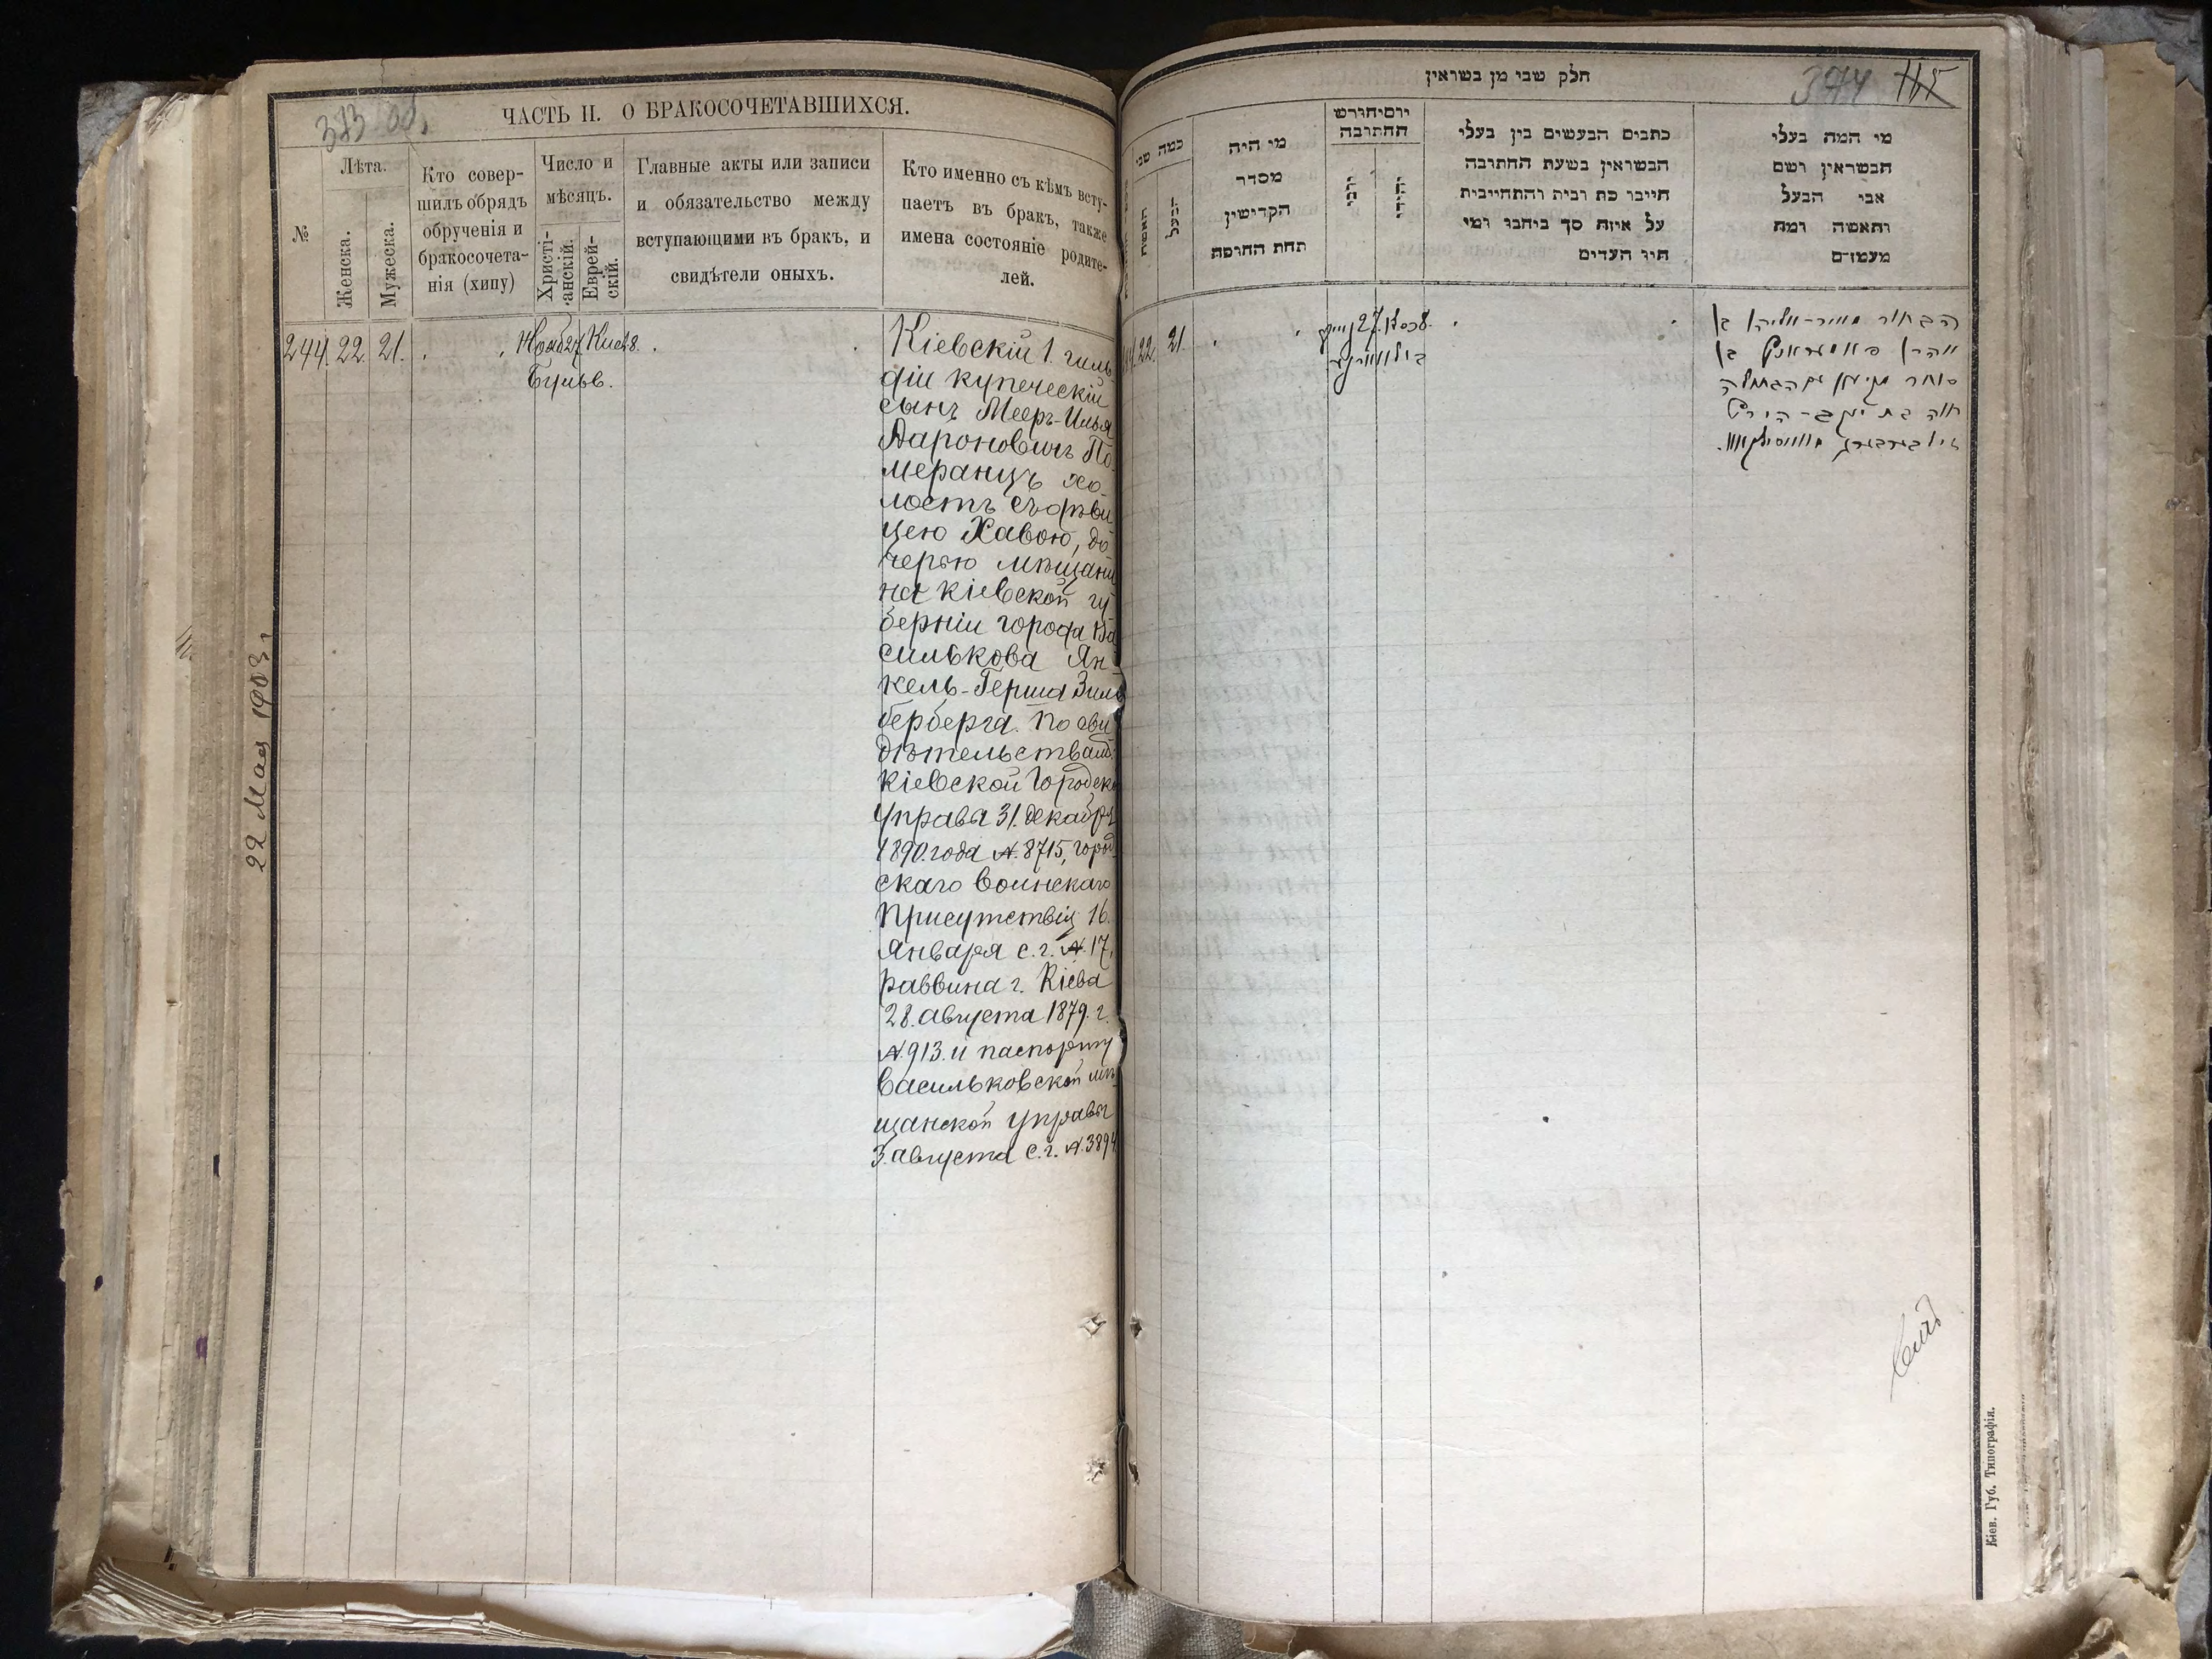 ЧАСТЬ II. О БРАКОСОЧЕТАВШИХСЯ.
№
Лѣта.
Женска.
Мужеска.
Кто совер-
шилъ обрядъ
обрученія и
бракосочета-
нія (хипу)
Число и
мѣсяцъ.
Христі-
анскій.
Еврей-
скій.
Главные акты или записи
и обязательство между
вступающими въ бракъ, и
свидѣтели оныхъ.
Кто именно съ кѣмъ всту-
паетъ въ бракъ, также
имена состояніе родите-
лей.
244. 22. 21. Нояб 27 Кисл 8.
Бульв.
Кіевскій 1. гиль
діи купеческій
сынъ Мееръ-Илья
Аароновичъ По
меранцъ хо-
лостъ съ дѣви
цею Хавою, до
черью мѣщани
на Кіевской гу
берніи города Ва
силькова Ян
кель-Герша Зиль
берберга. По сви
дѣтельствамъ
Кіевской Городско
Управы 31. декабря
1890. года №. 8715, город
скаго Воинскаго
Присутствія 16.
Января с. г. №. 17,
раввина г. Кіева
28. августа 1879. г.
№. 913. и паспорту
Васильковской мѣ
щанской управы
3. августа с. г. №. 3894
22 Мая 1903 г
חלק שני מן נשואין
374 115
כמה שני
האשה
הבעל
מי היה
מסדר
הקדושין
תחת החופה
יום וחודש
החתונה
כתבים הנעשים בין בעלי
הנשואין בשעת החתונה
חייבו כת ובית והתחייבות
על איזה סך ניתנו ומי
היו העדים
מי המה בעלי
הנשואין ושם
אבי הבעל
והאשה ומה
מעמדם
22. 21. 27. 8.
הבחור מאיר-אליהו בן
אהרן פאמעראנץ בן
סוחר מקיעוו עם הבתולה
חוה בת יעקב-הירש
זילבערבערג מוואסילקאוו.
Кіев. Губ. Типографія.